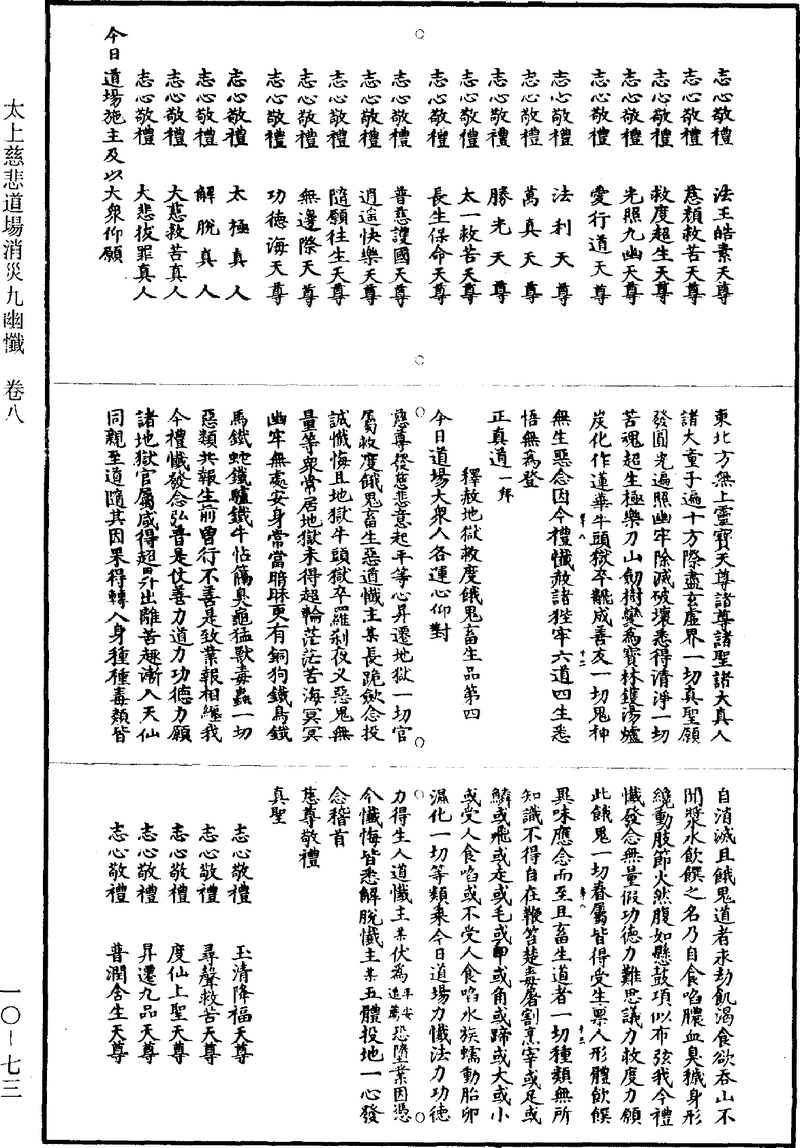 太上慈悲道場消災九幽懺　卷八
一〇－七三
志心敬禮　法王皓素天尊
志心敬禮　慈顏救苦天尊
志心敬禮　救度超生天尊
志心敬禮　光照九幽天尊
志心敬禮　愛行道天尊
志心敬禮　法利天尊
志心敬禮　萬真天尊
志心敬禮　勝光天尊
志心敬禮　太一救苦天尊
志心敬禮　長生保命天尊
志心敬禮　普慈護國天尊
志心敬禮　逍遥快樂天尊
志心敬禮　隨願往生天尊
志心敬禮　無邊際天尊
志心敬禮　功德海天尊
志心敬禮　太極真人
志心敬禮　解脫真人
志心敬禮　大慈救苦真人
志心敬禮　大悲拔罪真人
今日道場施主及以大衆仰願
東北方無上靈寶天尊諸尊諸聖諸大真人
諸大童子遍十方際盡玄虛界一切真聖願
發圓光遍照幽牢除滅破壞悉得清淨一切
苦魂超生極樂刀山劒樹變為寶林鑊湯爐
炭化作蓮華牛頭獄卒翻成善友一切鬼神
無生惡念因今禮懺赦諸狴牢六道四生悉
悟無為登
正真道一拜
釋赦地獄救度餓鬼畜生品第四
今日道場大衆人各運心仰對
慈尊發慈悲意起平等心昇遷地獄一切官
屬救度餓鬼畜生惡道懺主某長跪歛念投
誠懺悔且地獄牛頭獄卒羅刹夜义惡鬼無
量等衆常居地獄未得超輪茫茫苦海冥冥
幽牢無處安身常當暗昧更有銅狗鐵鳥鐵
馬鐵蛇鐵驢鐵牛怗蕩臭龜猛獸毒蟲一切
惡類共報生前曾行不善是致業報相纏我
今禮懺發念弘普是仗善力道力功德力願
諸地獄官屬咸得超昇出離苦趣漸入天仙
同親至道隨其因果得轉人身種種毒類皆
自消滅且餓鬼道者永劫飢渴食欲吞山不
聞漿水飲饌之名乃自食啗膿血臭穢身形
纔動肢節火然腹如懸鼓項似布弦我今禮
懺發念無量假功德力難思議力救度力願
此餓鬼一切眷屬皆得受生禀人形體飲饌
異味應念而至且畜生道者一切種類無所
知識不得自在鞭笞楚毒屠割烹宰或足或
鱗或飛或走或毛或甲或角或蹄或大或小
或受人食啗或不受人食啗水族蠕動胎卵
濕化一切等類乘今日道場力懺法力功德
力得生人道懺主某伏為平安追薦恐墮業因憑
今懺悔皆悉解脫懺主某五體投地一心發
念稽首
慈尊敬禮
真聖
志心敬禮　玉清降福天尊
志心敬禮　尋聲救苦天尊
志心敬禮　度仙上聖天尊
志心敬禮　昇遷九品天尊
志心敬禮　普潤含生天尊